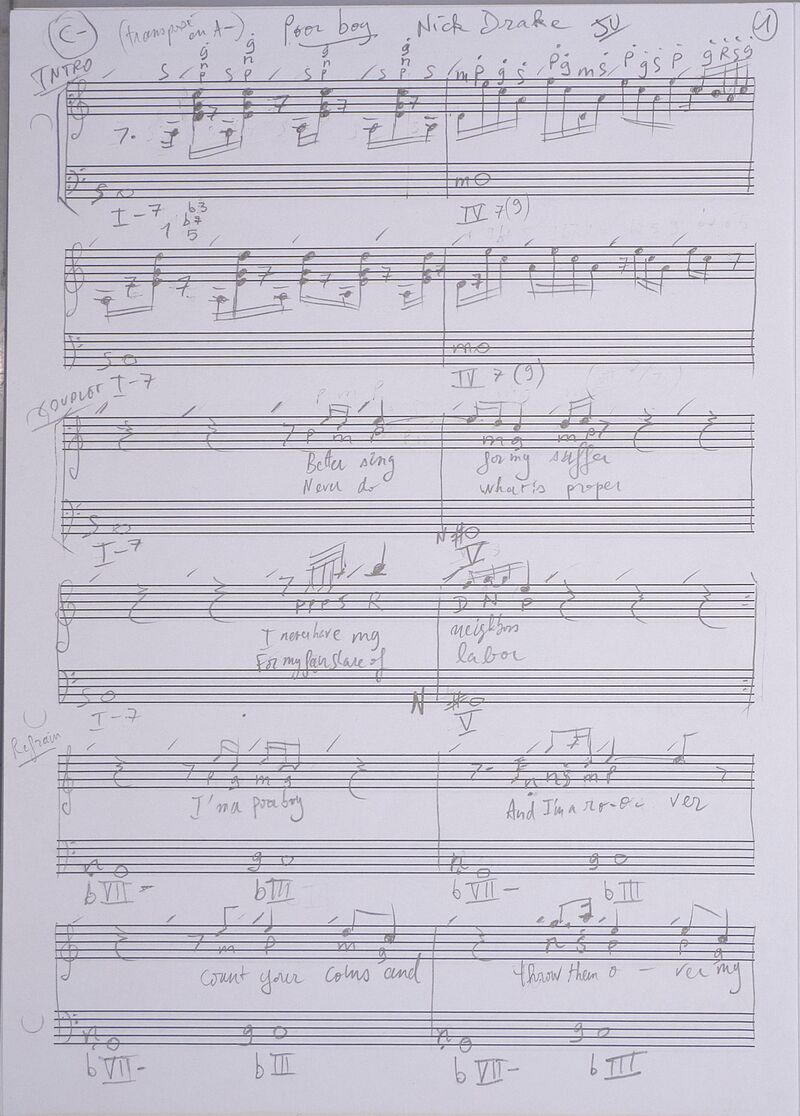 C- (transposé en A-) Poor boy Nick Drake 1
INTRO S g n p S S g n p S S g n p S m p g s p g m s p g s p g R s g
S
I-7 IV 7(9)
1 b3 b7 5
S m
I-7 IV 7(9)
COUPLET
p m p m g m p
Better sing for my suffer
Never do what is proper
S N #
I-7 V
p p p S R D N p
I never have my neighbors
For my fair share of labor
S N #
I-7 V
Refrain
p g m g n n s m p
I'm a poor boy And I'm a ro-o- ver
n g n g
b VII- b III b VII- b III
m p m g n s p p g
count your coins and throw them o - ver my
n g n g
b VII- b III b VII- b III